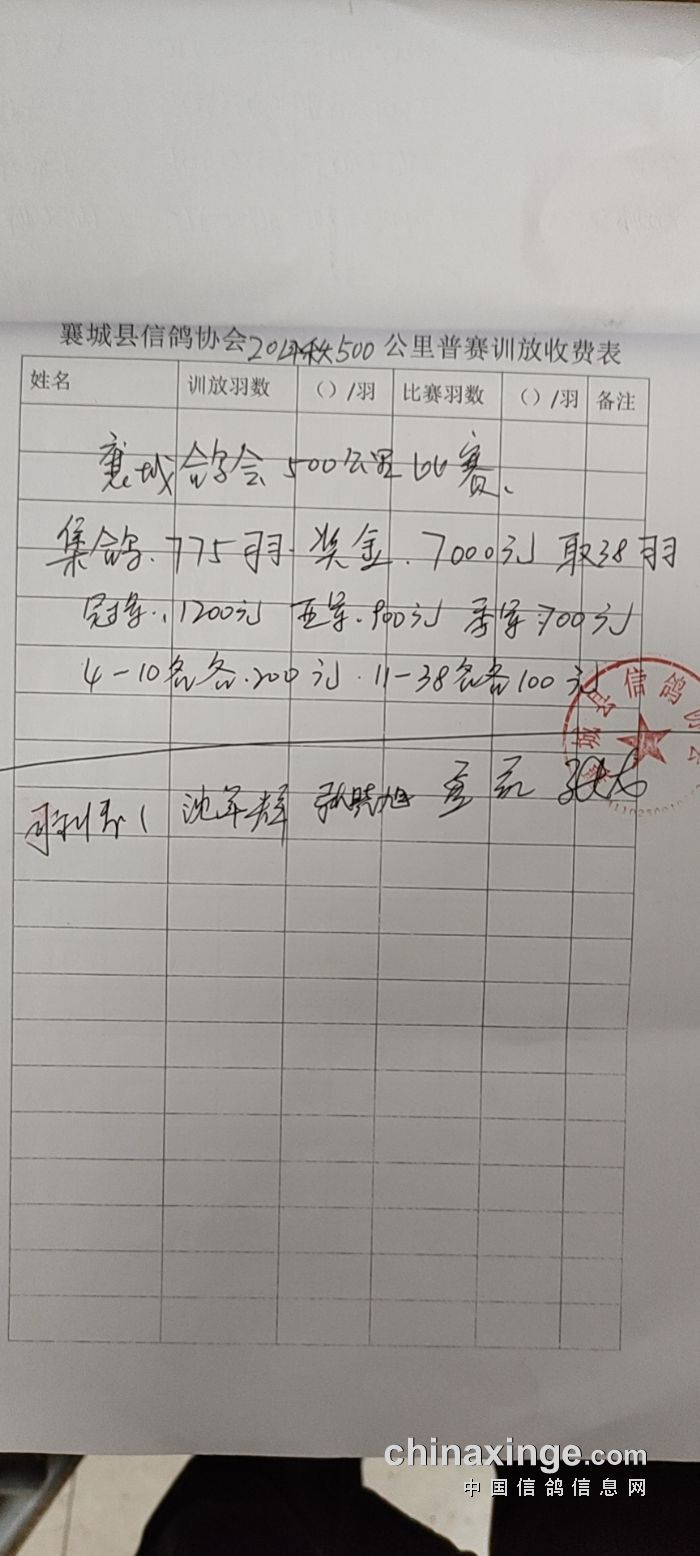 襄城县信鸽协会 秋500 公里普赛训放收费表
姓名 训放羽数 （）/羽 比赛羽数 （）/羽 备注
襄城鸽会500公里比赛、
集鸽.775羽.奖金.7000元 取38羽
冠军.1200元 亚军.900元 季军:700元
4-10名各.200元.11-38名各100元
城县信鸽协会
沈军辉 张晓旭
chinaxinge.com
中国信鸽信息网